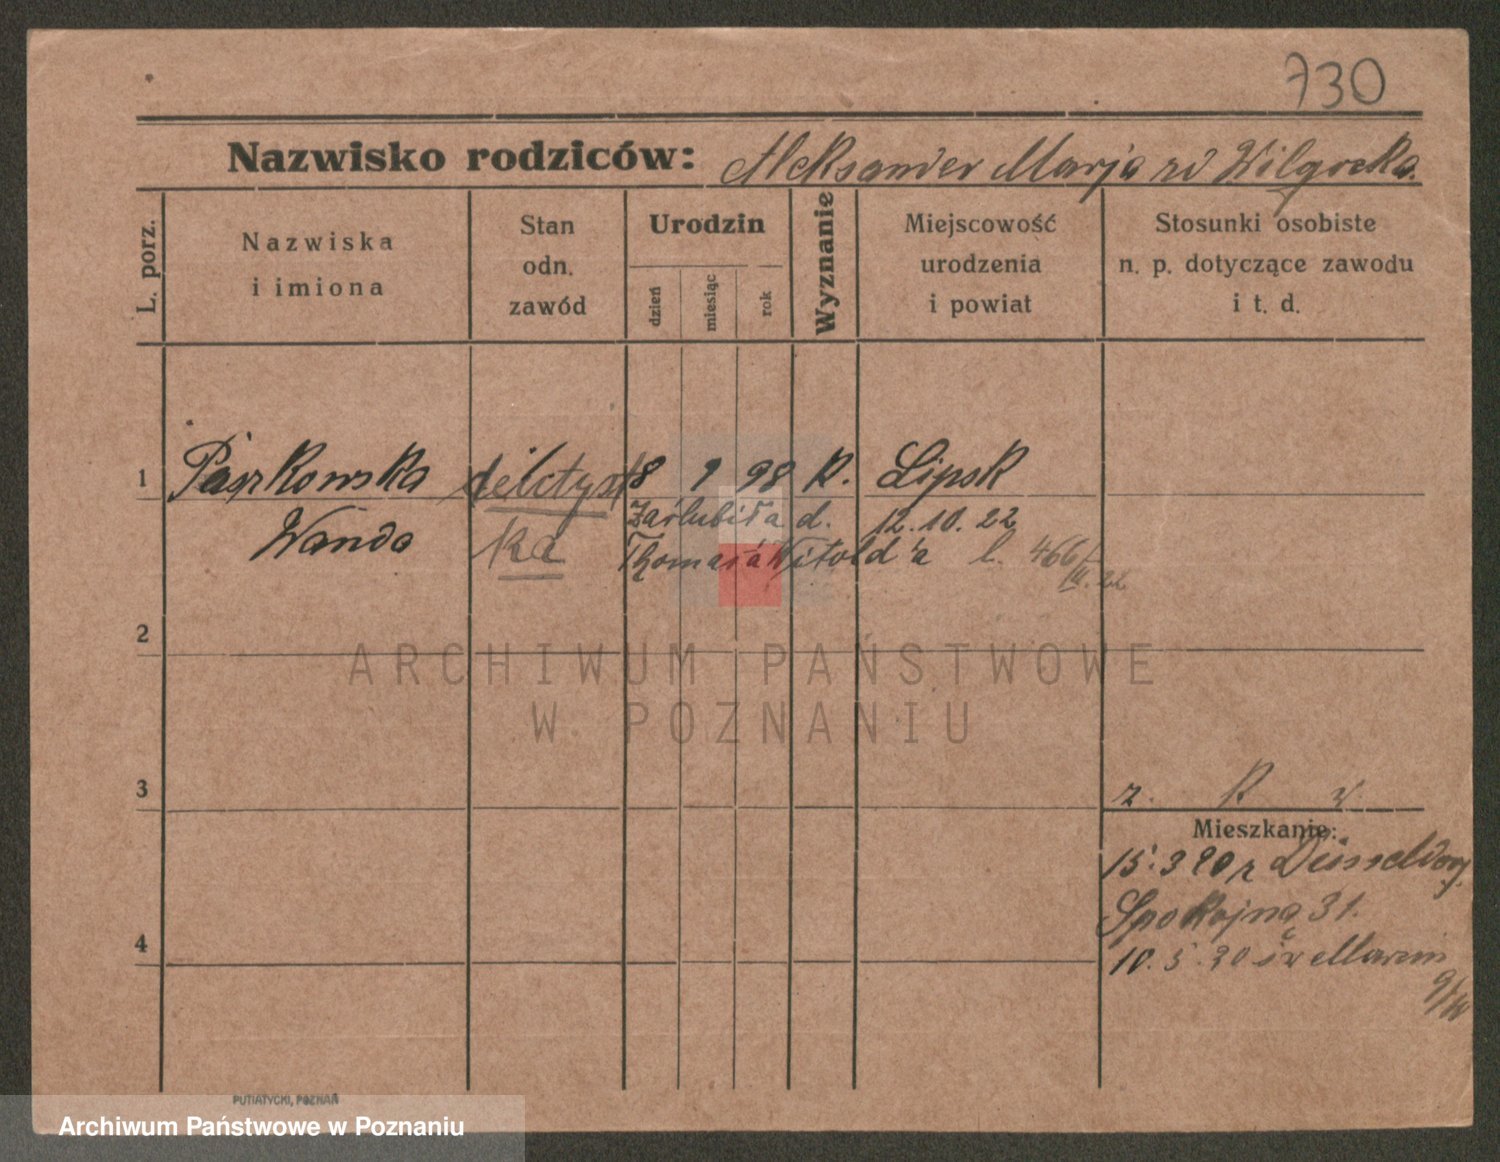 730
Nazwisko rodziców: Aleksander Marja zd Wilgocka.
L. porz.
Nazwiska
i imiona
Stan
odn.
zawód
Urodzin
dzień
miesiąc
rok
Wyznanie
Miejscowość
urodzenia
i powiat
Stosunki osobiste
n. p. dotyczące zawodu
i t. d.
1 Paszkowska 18 9 98 K. Lipsk
Wanda ka
Zaślubiła d. 12.10.22
Witold'a l. 466/
III. 22
2
ARCHIWUM PAŃSTWOWE
W POZNANIU
3
z. K w
Mieszkanie:
15.3 20 z Düsseldorf
Spokojna 31.
4
10.5.20 św Marcin
PUTIATYCKI, POZNAŃ
Archiwum Państwowe w Poznaniu